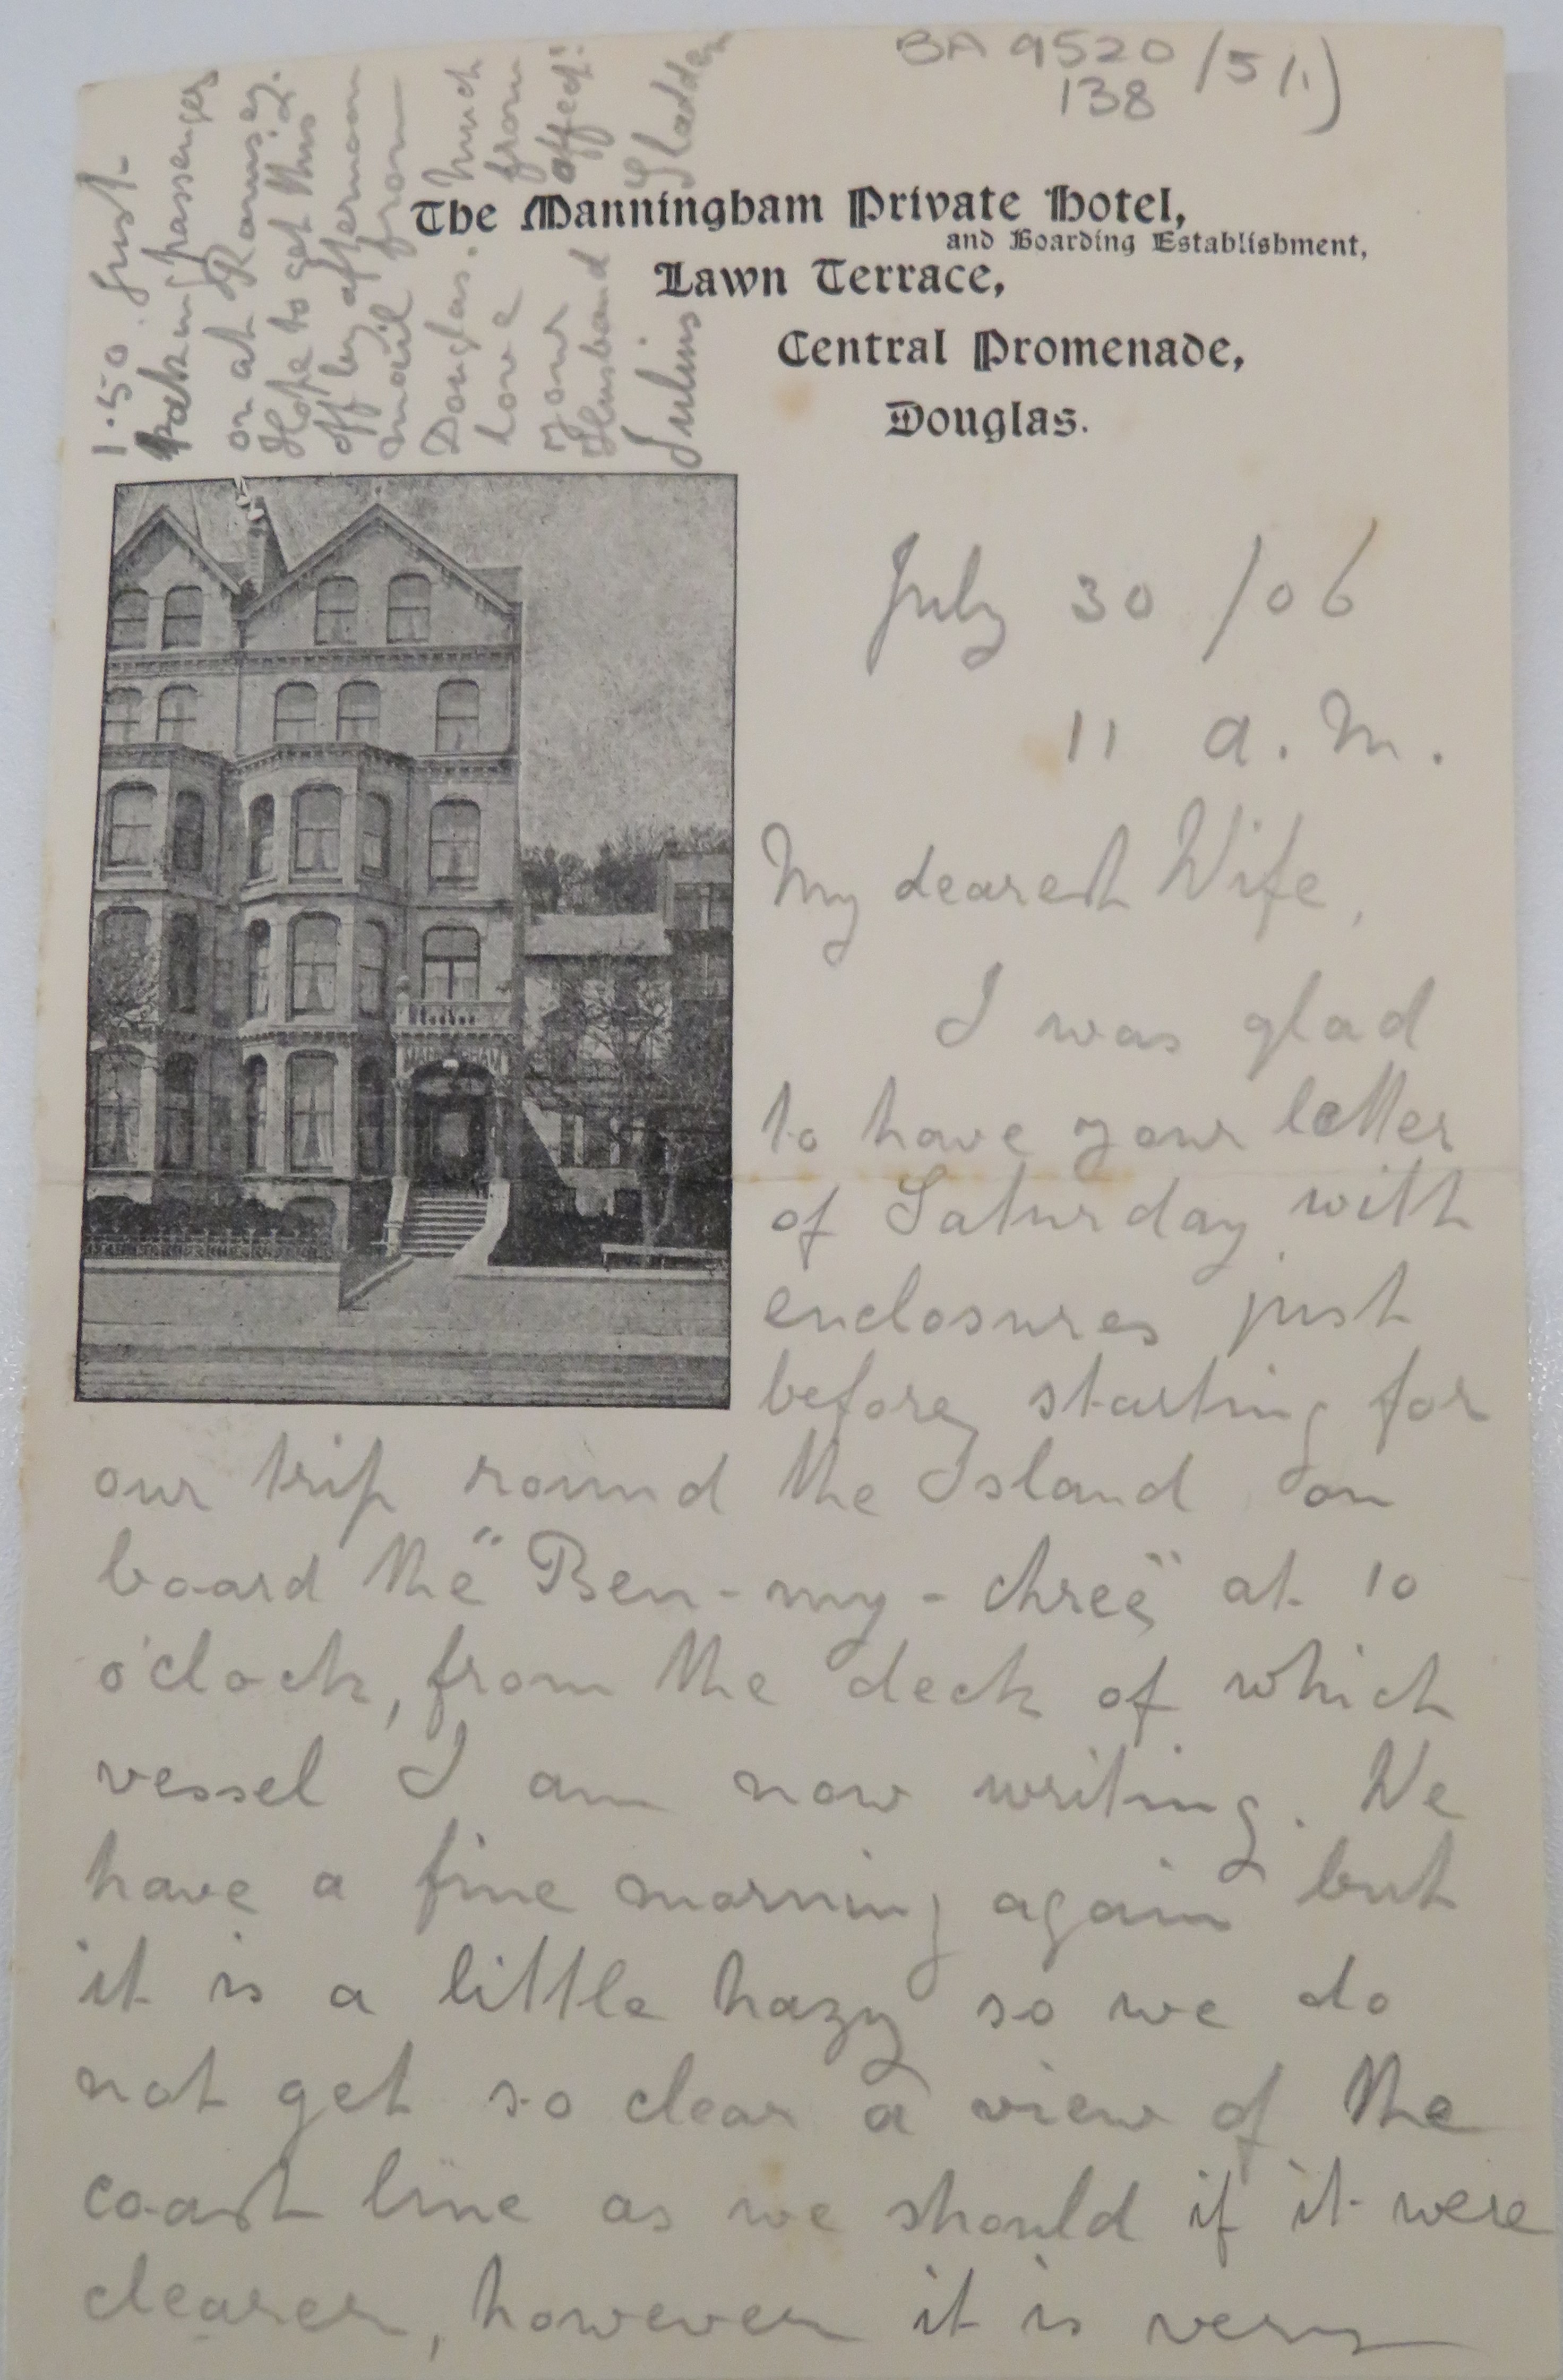 BA 9520 / 5 / 1)
138
The Manningham Private Hotel,
and Boarding Establishment,
Lawn Terrace,
Central Promenade,
Douglas.
July 30 /06
11 a.m.
My dearest Wife,
I was glad
to have your letter
of Saturday with
enclosures just
before starting for
our trip round the Island on
board the "Ben-my-chree" at 10
o'clock, from the deck of which
vessel I am now writing. We
have a fine morning again but
it is a little hazy so we do
not get so clear a view of the
coast line as we should if it were
clearer, however it is very
1.50. Just
taking passengers
on at Ramsey.
Hope to get this
off by afternoon
mail from
Douglas. Much
love from
your affect:
Husband
Julius Sladden
MANNINGHAM